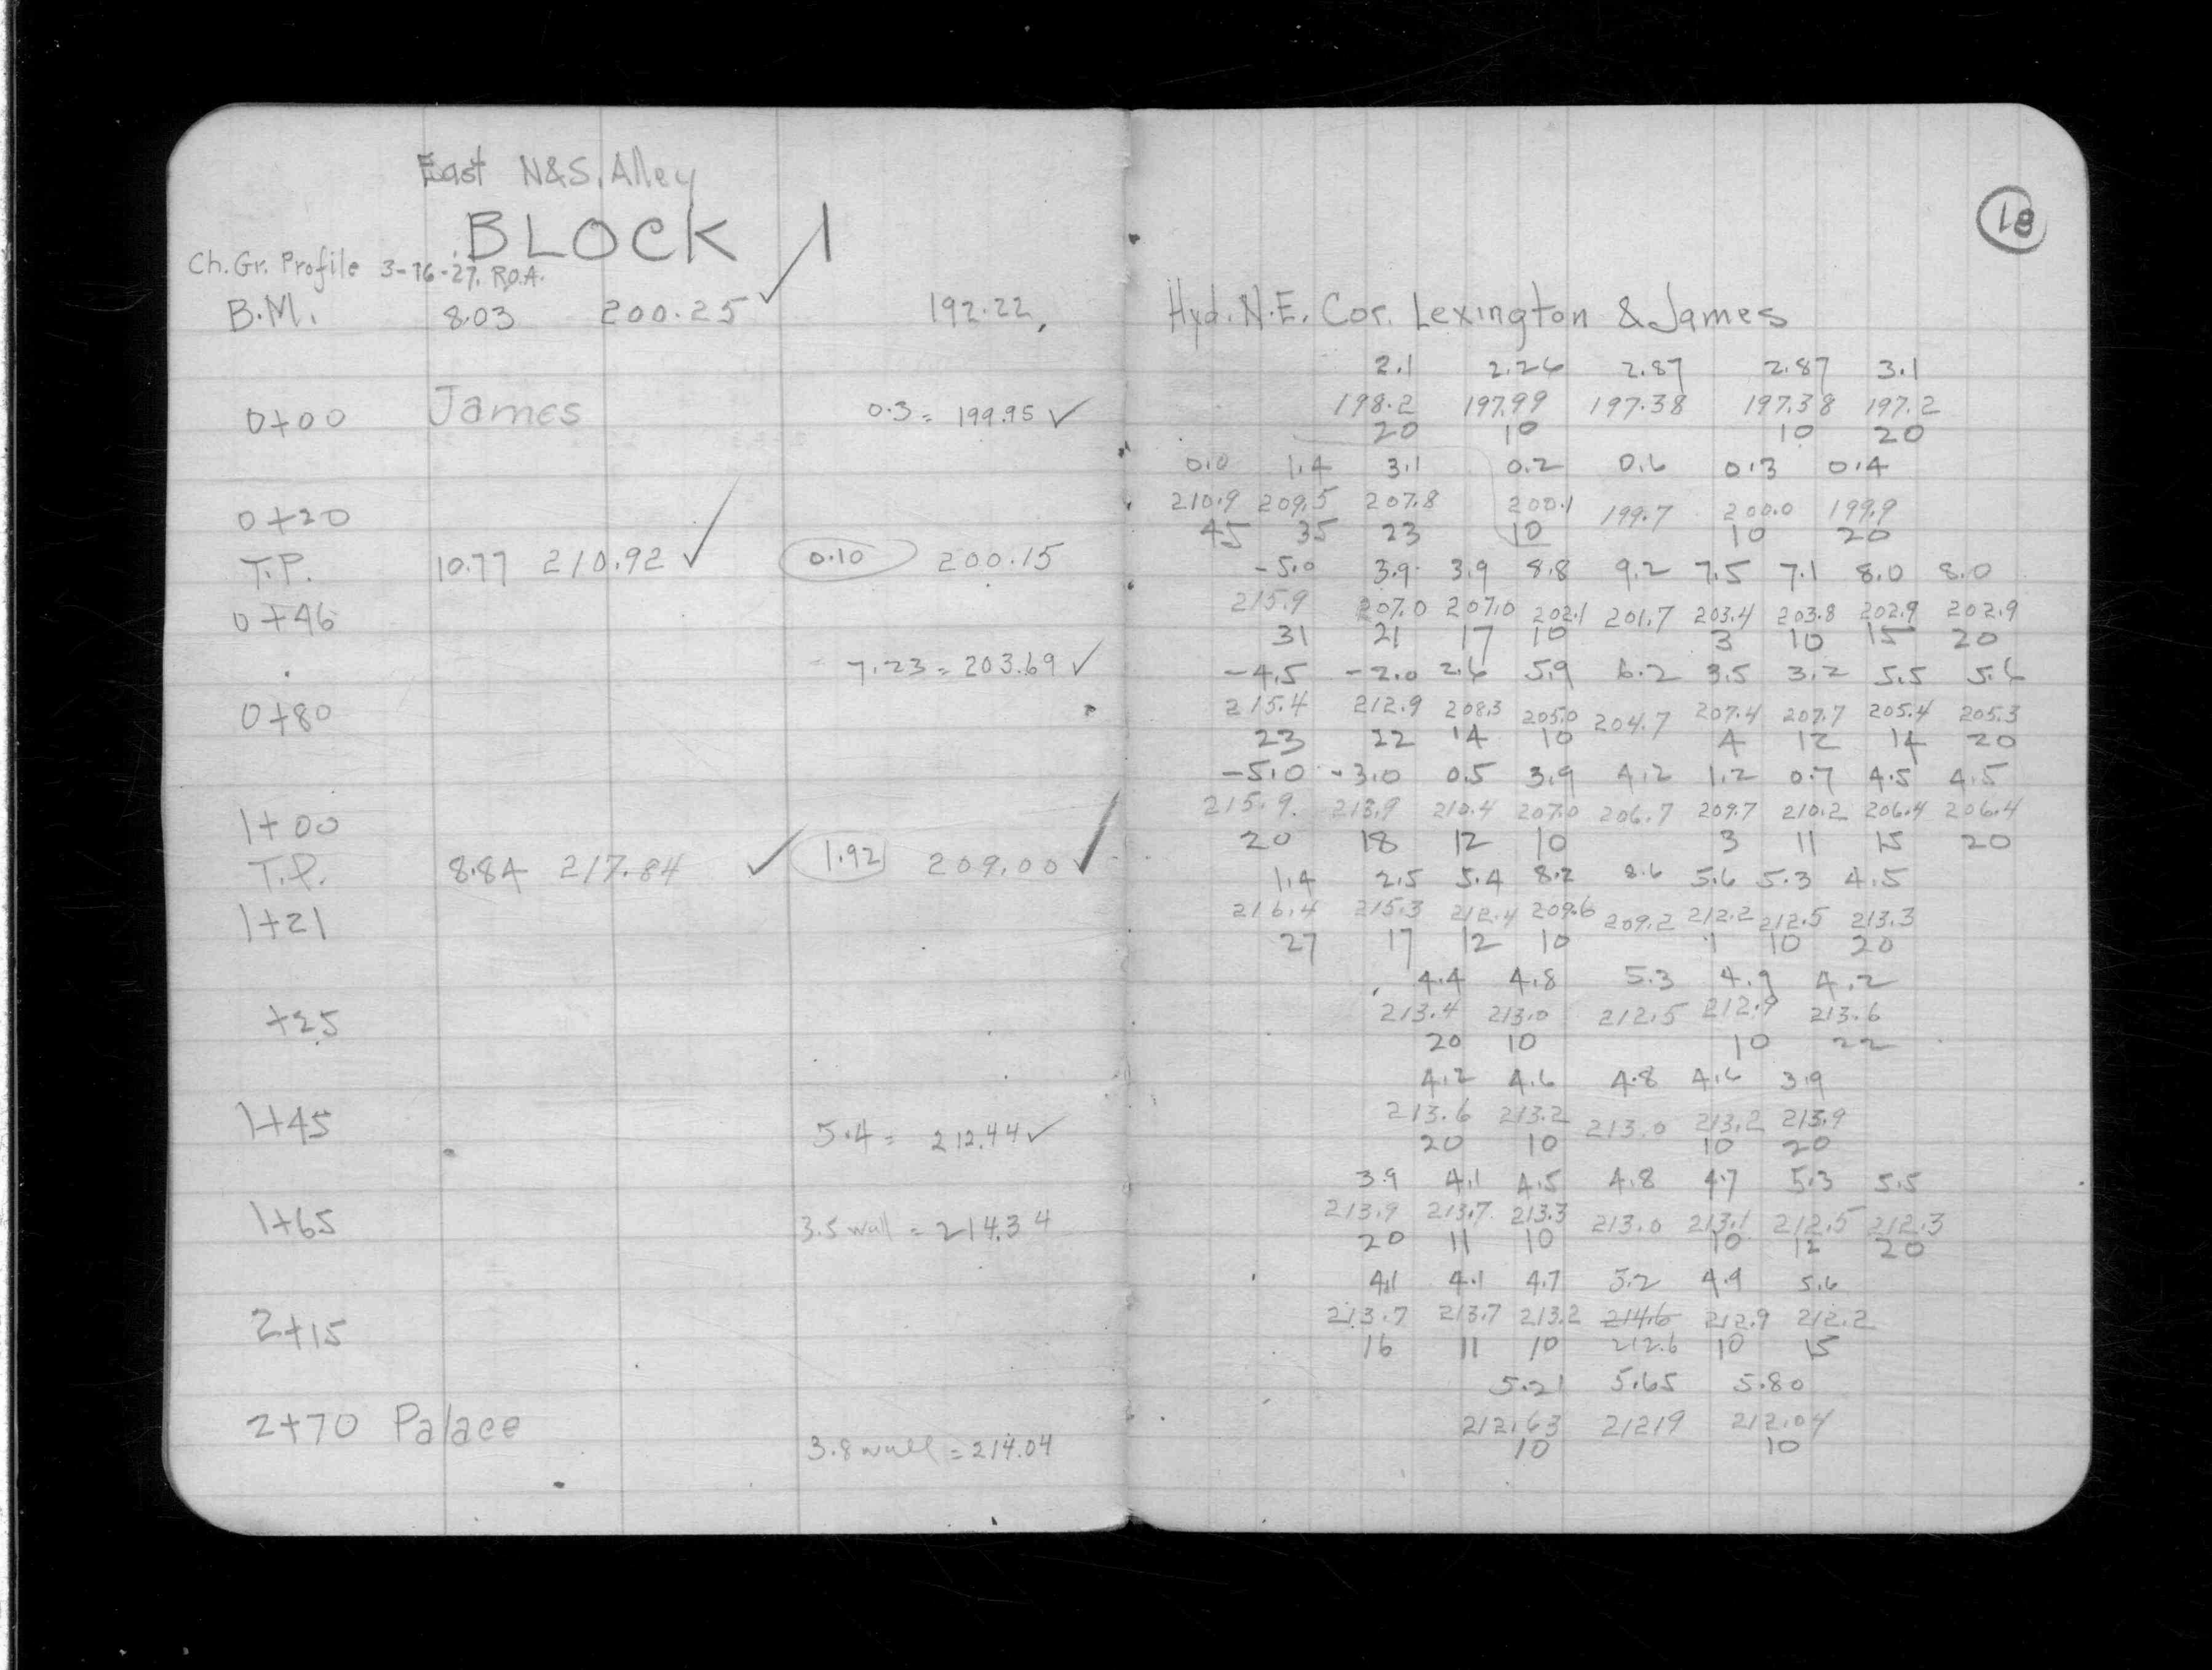 East N&S. Alley
BLOCK 1
Ch. Gr. Profile 3-16-27. R.O.A.
B.M. 8.03 200.25 ✓ 192.22
0+00 James 0.3 = 199.95 ✓
0+20
T.P. 10.77 210.92 ✓ 0.10 200.15
0+46
7.23 = 203.69 ✓
0+80
1+00
T.P. 8.84 217.84 ✓ 1.92 209.00 ✓
1+21
+25
1+45 5.4 = 212.44 ✓
1+65 3.5 wall = 214.34
2+15
2+70 Palace
3.8 wall = 214.04
18
Hyd. N.E. Cor. Lexington & James
2.1 2.26 2.87 2.87 3.1
198.2 197.99 197.38 197.38 197.2
20 10 10 20
0.0 1.4 3.1 0.2 0.6 0.3 0.4
210.9 209.5 207.8 200.1 199.7 200.0 199.9
45 35 23 10 10 20
-5.0 3.9 3.9 8.8 9.2 7.5 7.1 8.0 8.0
215.9 207.0 207.0 202.1 201.7 203.4 203.8 202.9 202.9
31 21 17 10 3 10 15 20
-4.5 -2.0 2.6 5.9 6.2 3.5 3.2 5.5 5.6
215.4 212.9 208.3 205.0 204.7 207.4 207.7 205.4 205.3
23 22 14 10 4 12 14 20
-5.0 -3.0 0.5 3.9 4.2 1.2 0.7 4.5 4.5
215.9 213.9 210.4 207.0 206.7 209.7 210.2 206.4 206.4
20 18 12 10 3 11 15 20
1.4 2.5 5.4 8.2 8.6 5.6 5.3 4.5
216.4 215.3 212.4 209.6 209.2 212.2 212.5 213.3
27 17 12 10 1 10 20
4.4 4.8 5.3 4.9 4.2
213.4 213.0 212.5 212.9 213.6
20 10 10 22
4.2 4.6 4.8 4.6 3.9
213.6 213.2 213.0 213.2 213.9
20 10 10 20
3.9 4.1 4.5 4.8 4.7 5.3 5.5
213.9 213.7 213.3 213.0 213.1 212.5 212.3
20 11 10 10 12 20
4.1 4.1 4.7 5.2 4.9 5.6
213.7 213.7 213.2 214.6 212.9 212.2
16 11 10 212.6 10 15
5.21 5.65 5.80
212.63 21219 212.04
10 10